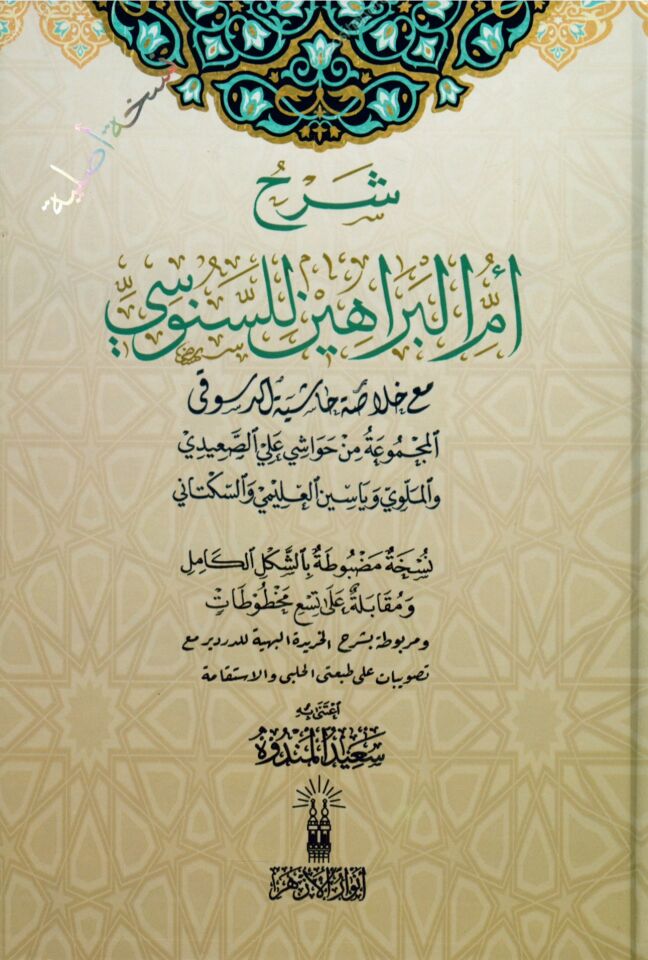 نسخة اصلية
شَرْحُ
أُمِّ البَرَاهِيْنِ لِلسَّنُوسِيِّ
مع خلاصة حاشية الدسوقي
المَجْمُوعَةُ مِنْ حَوَاشِي عَلِيٍّ الصَّعِيدِي
وَالمَلَّوِيِّ وَيَاسِينَ العُلَيْمِيِّ وَالسُّكْتَانِي
نُسْخَةٌ مَضْبُوطَةٌ بِالشَّكْلِ الكَامِلِ
وَمُقَابَلَةٌ عَلَى تِسْعِ مَخْطُوطَاتٍ
ومربوطة بشرح الخريدة البهية للدردير مع
تصويبات على طبعتي الحلبي والاستقامة
اعْتَنَى بِهِ
سَعِيدُ المَنْدُوْهُ
أنوار الأزهر